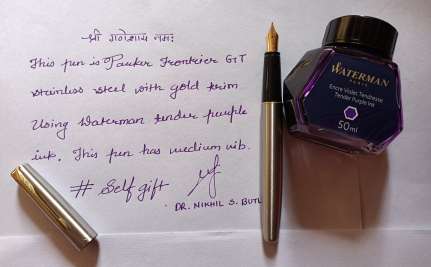 श्री गणेशाय नमः
This pen is Parker Frontier GT
stainless steel with gold trim
Using Waterman tender purple
ink. This pen has medium nib.
# Self gift
DR. NIKHIL S. BUTL
WATERMAN
PARIS
Encre Violet Tendresse
Tender Purple Ink
50ml